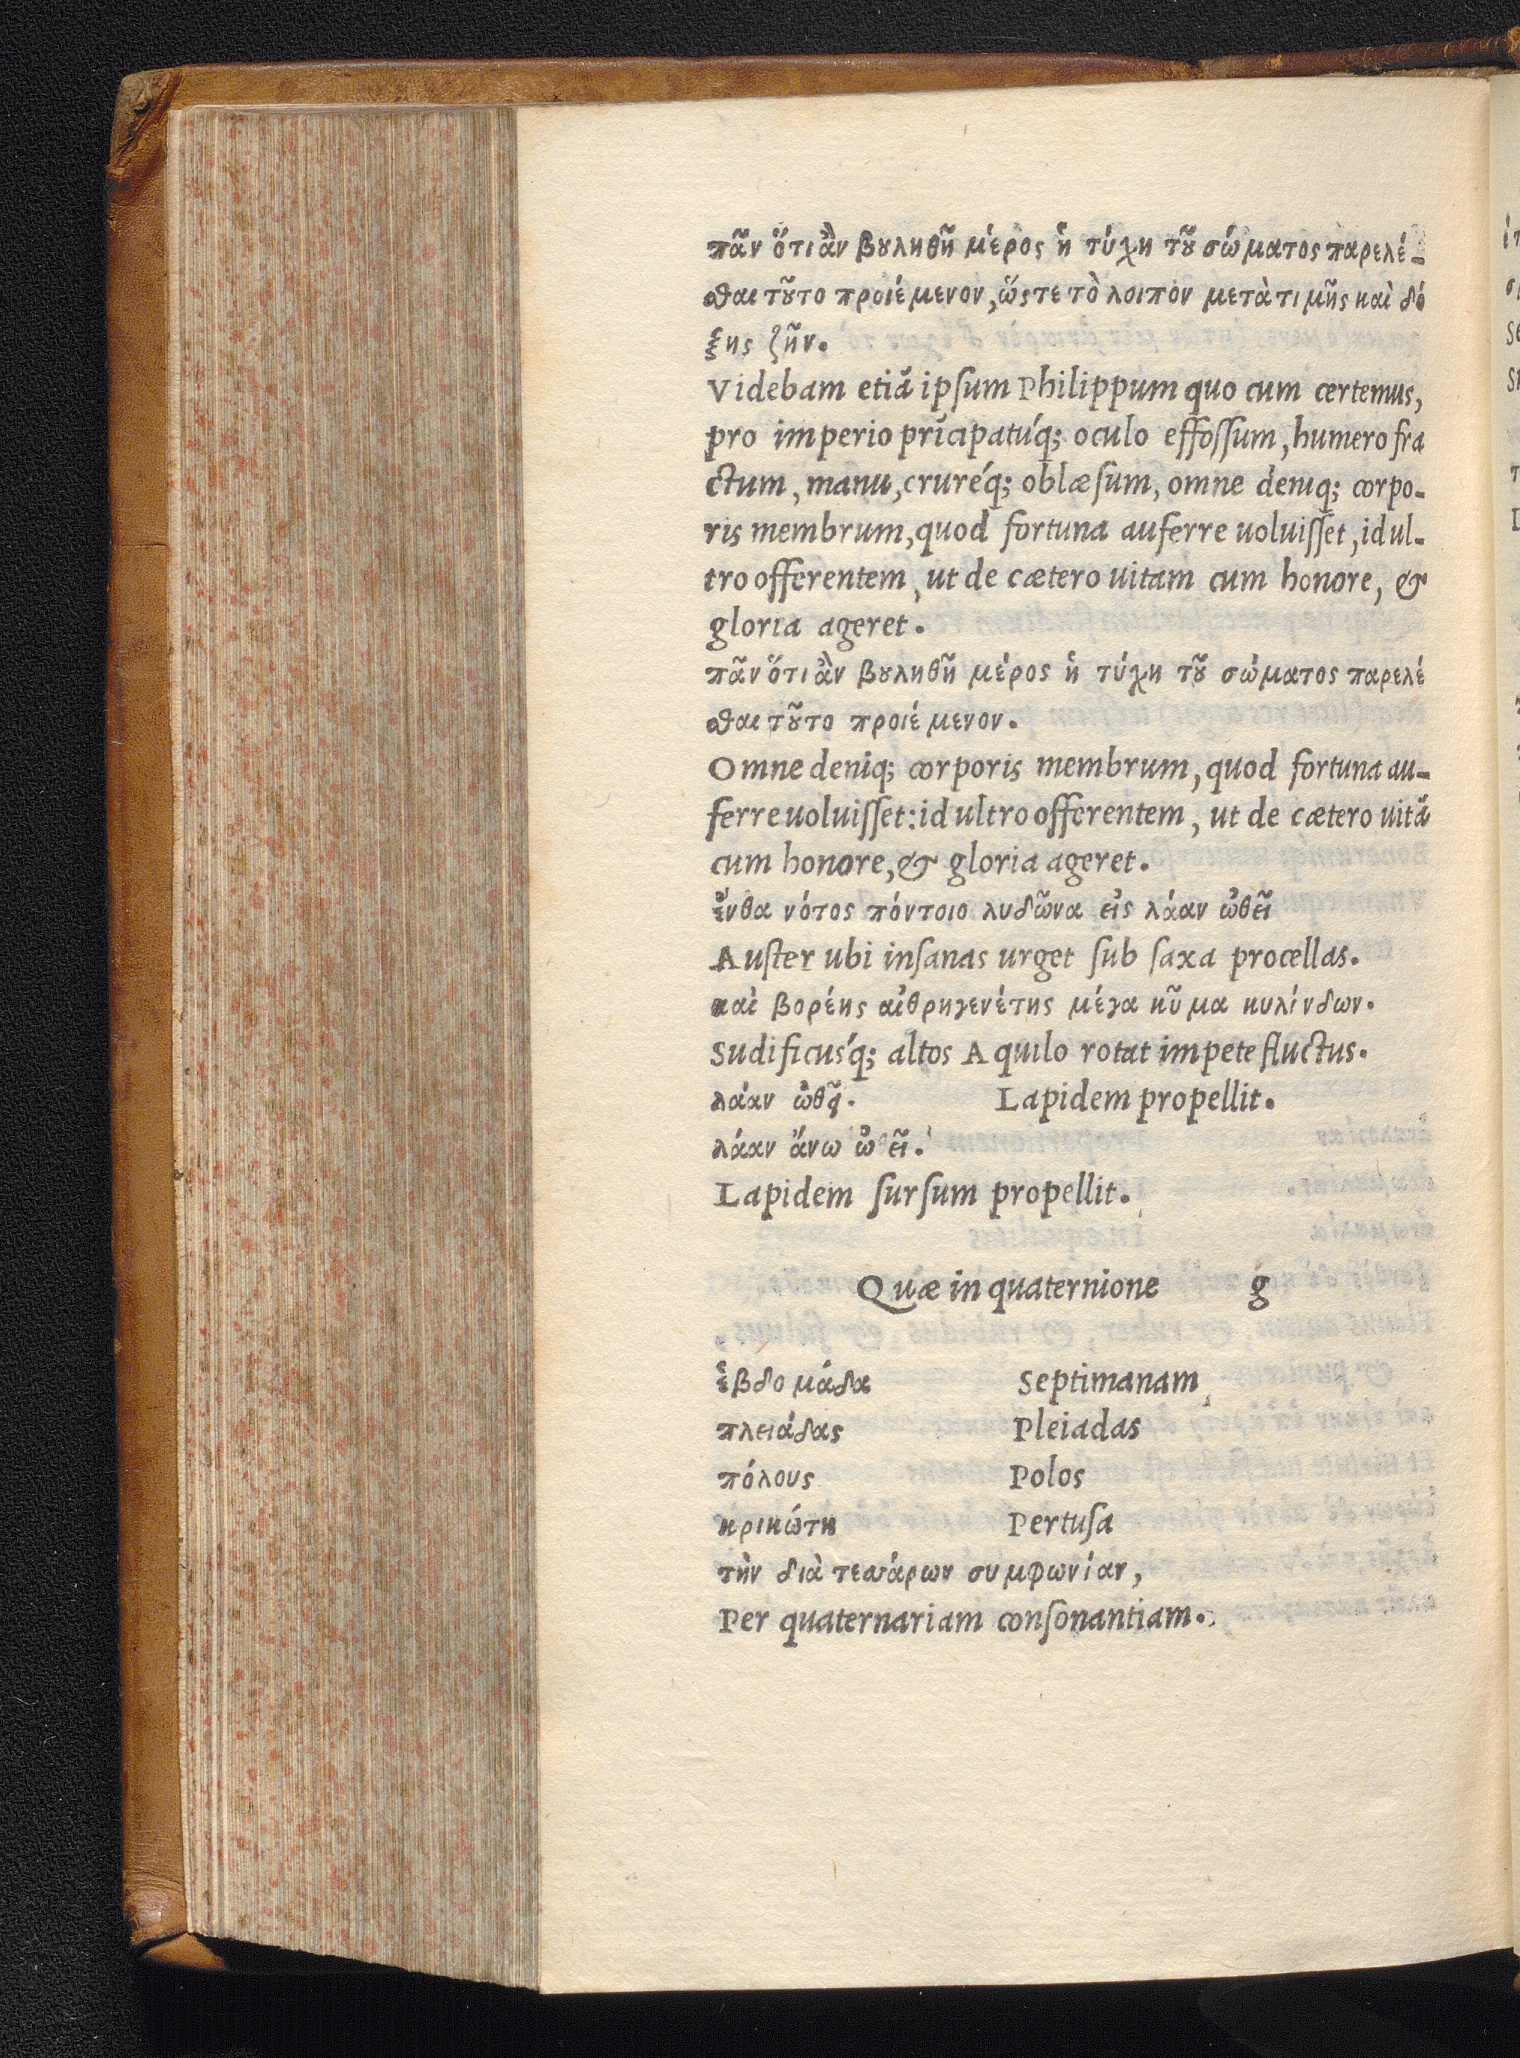 πᾶν ὅτι ἂν βȣληθῆ μέρος ἡ τύχη τȣ͂ σώματος παρελέ-
σθαι τȣ͂το προιέμενον, ὥςτε τὸ λοιπὸν μετὰ τιμῆς καὶ δό
ξης ζῆν.
Videbam etiã ipſum Philippum quo cum certemus,
pro imperio prĩcipatúq; oculo effoſſum, humero fra
ctum, manu, cruréq; oblæſum, omne deniq; corpo-
ris membrum, quod fortuna auferre uoluiſſet, id ul-
tro offerentem, ut de cætero uitam cum honore, &
gloria ageret.
πᾶν ὅτι ἂν βȣληθῆ μέρος ἡ τύχη τȣ͂ σώματος παρελέ
σθαι τȣ͂το προιέμενον.
Omne deniq; corporis membrum, quod fortuna au-
ferre uoluiſſet: id ultro offerentem, ut de cætero uitã
cum honore, & gloria ageret.
ἔνθα νότος πόντοιο λυδῶνα εἰς λάαν ὠθεῖ
Auſter ubi inſanas urget ſub ſaxa procellas.
καὶ βορέης αἰθρηγενέτης μέγα κῦμα κυλίνδων.
Sudificusq́; altos Aquilo rotat impete fluctus.
λάαν Lapidem propellit.
λάαν ἄνω ὠθεῖ.
Lapidem ſurſum propellit.
Quæ in quaternione g
ἑβδομάδα Septimanam
πλειάδας Pleiadas
πόλους Polos
κρικώτη Pertuſa
τὴν διὰ τεσσάρων συμφωνίαν,
Per quaternariam conſonantiam.